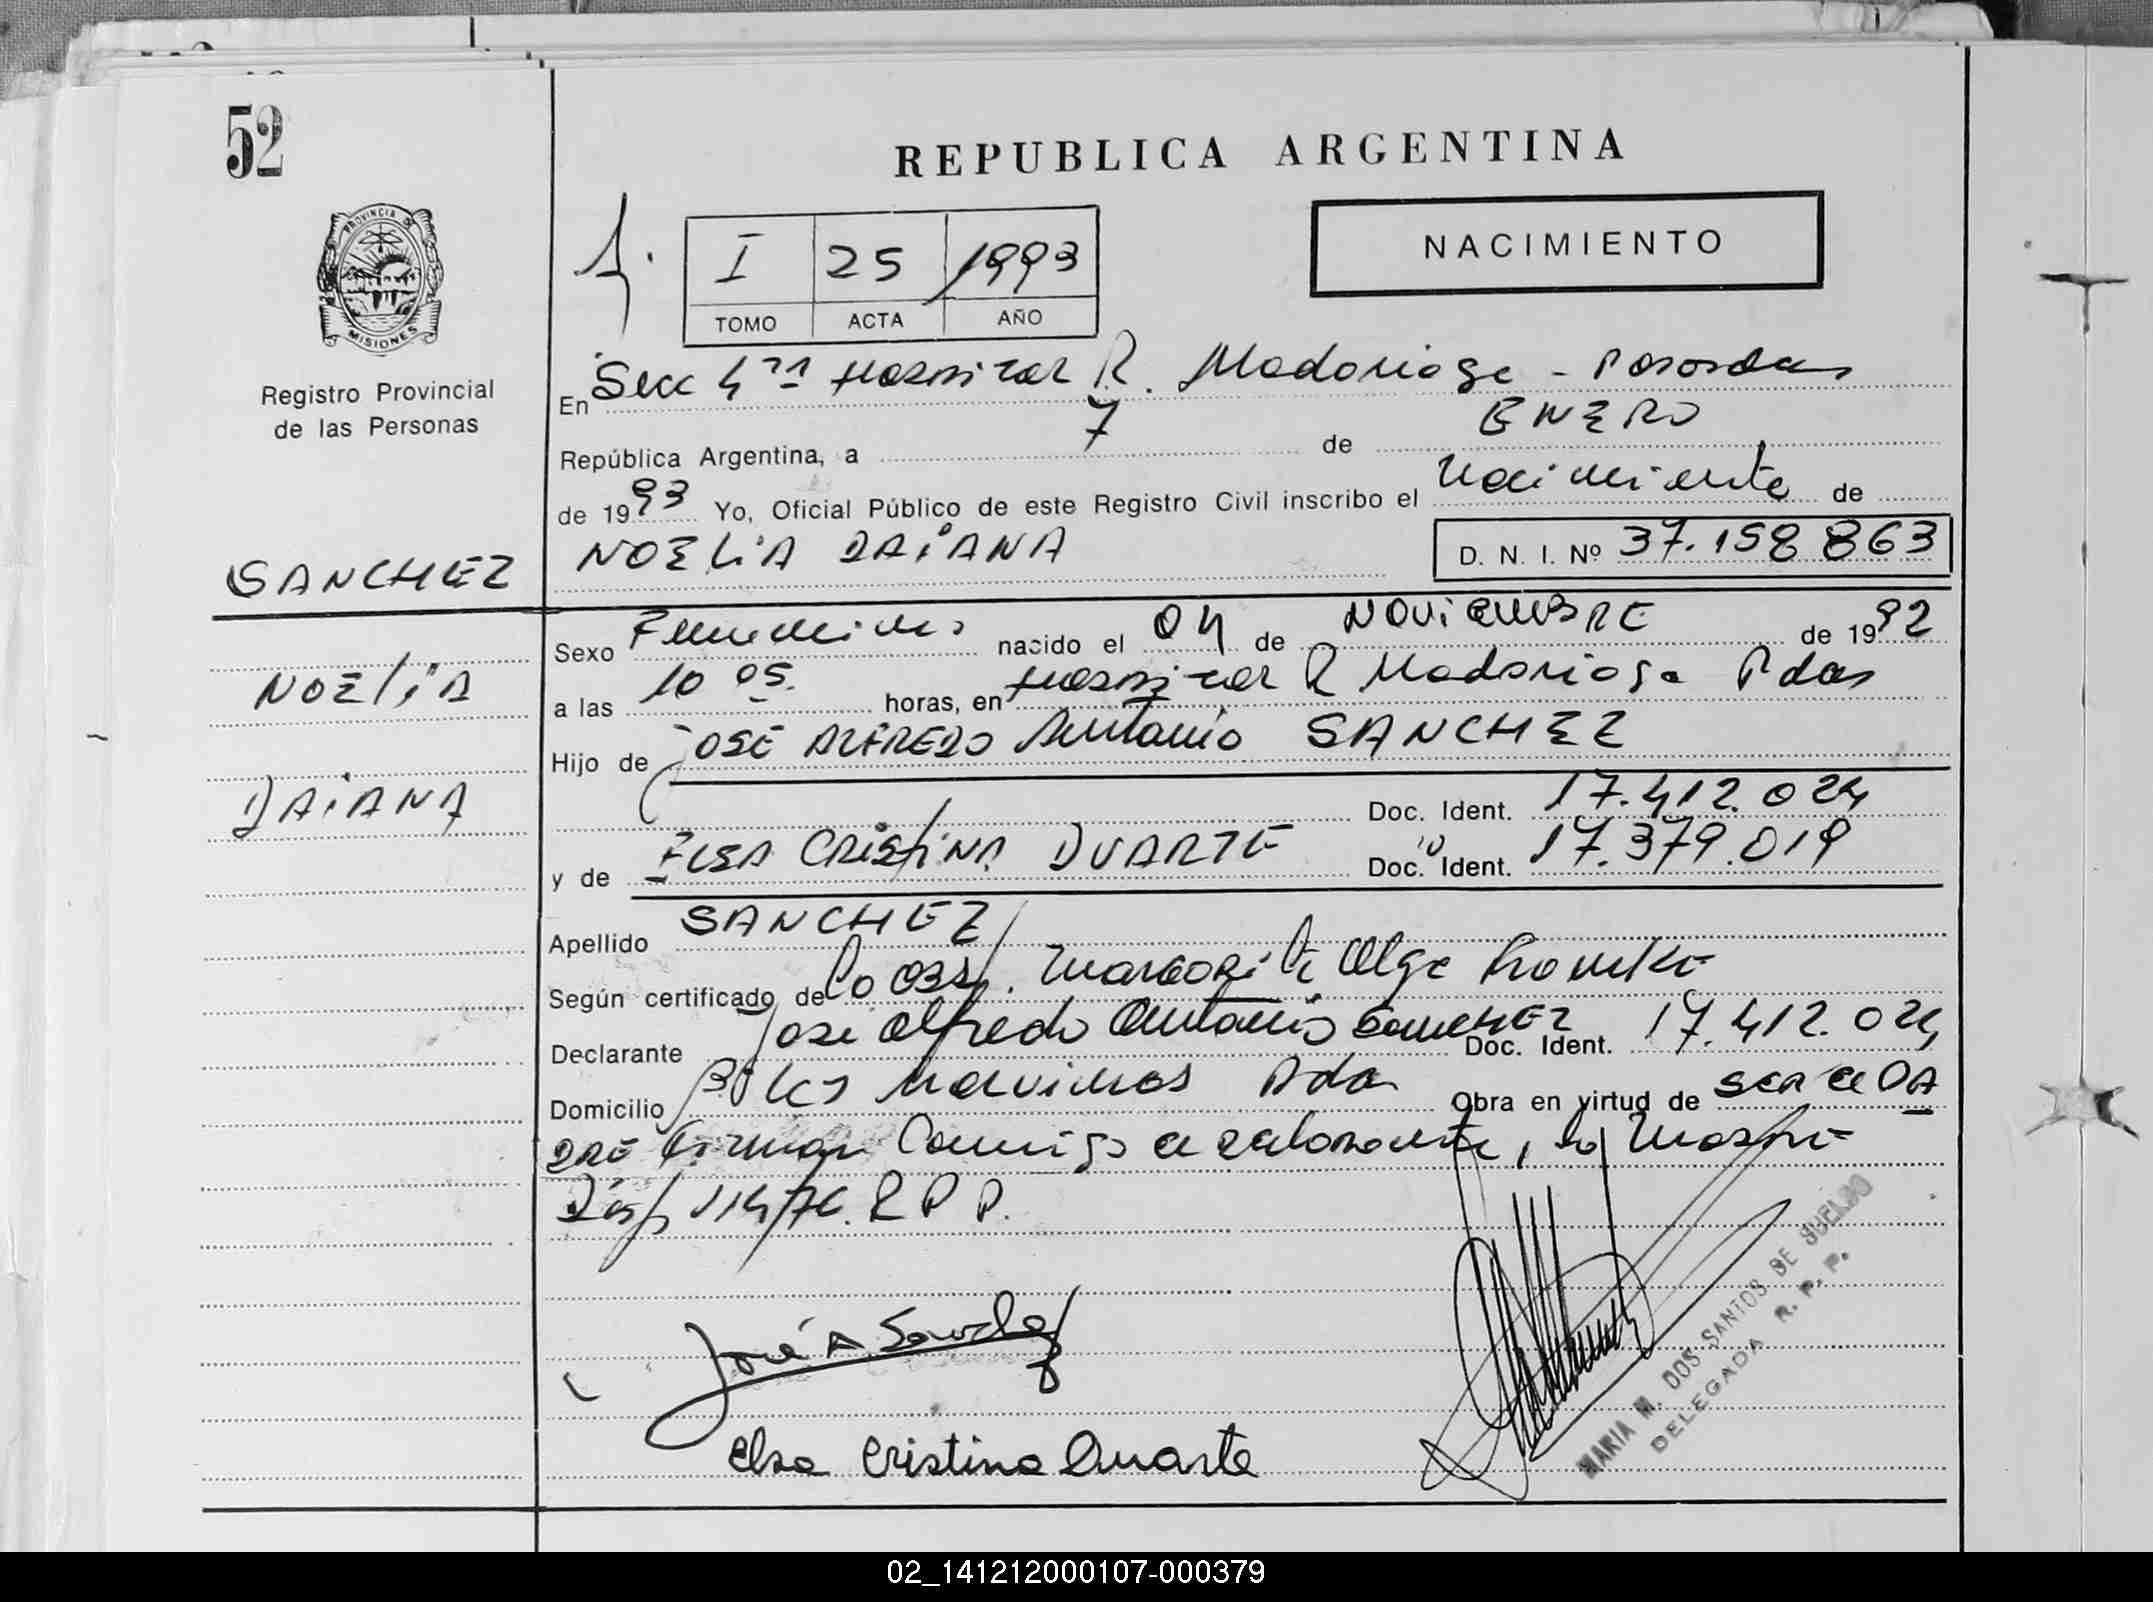 52
REPUBLICA ARGENTINA
PROVINCIA DE
MISIONES
Registro Provincial
de las Personas
I 25 1993
TOMO ACTA AÑO
NACIMIENTO
En Secc 4ta Hospital R. Madariaga - Posadas
República Argentina, a 7 de ENERO
de 1993 Yo, Oficial Público de este Registro Civil inscribo el Nacimiento de
NOELIA DAIANA
D. N. I. Nº 37.158 863
SANCHEZ
NOELIA
DAIANA
Sexo Femenino nacido el 04 de NOVIEMBRE de 1992
a las 10 05. horas, en Hospital R Madariaga Pdas
Hijo de JOSE ALFREDO Antonio SANCHEZ
Doc. Ident. 17.412.024
y de ELSA CRISTINA DUARTE Doc. Ident. 17.379.019
Apellido SANCHEZ
Según certificado de la Obst. Margarita Olga
Declarante Jose Alfredo Antonio SANCHEZ Doc. Ident. 17.412.024
Domicilio Bº Las Malvinas Pdas Obra en virtud de
firman Conmigo el declarante, la
R P P.
José A Sanchez
Elsa Cristina Duarte
MARIA M. DOS SANTOS DE SUELDO
DELEGADA R. P. P.
02_141212000107-000379